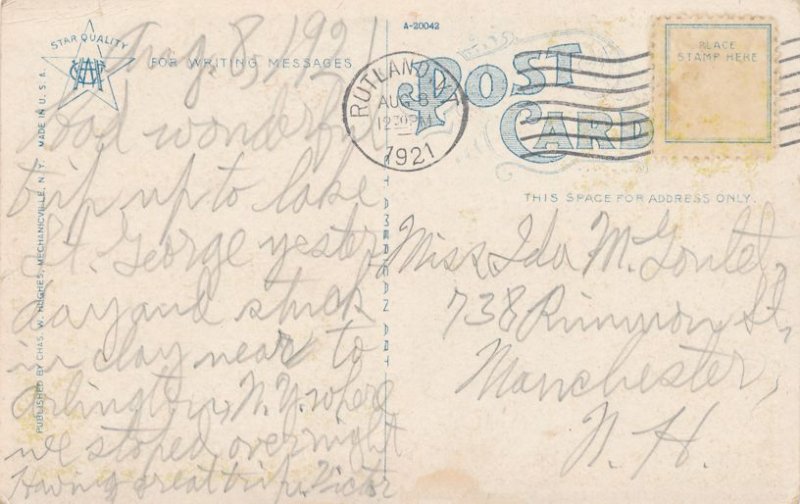 STAR QUALITY
A-20042
FOR WRITING MESSAGES
POST
CARD
PLACE
STAMP HERE
THIS SPACE FOR ADDRESS ONLY.
RUTLAND
AUG 8
12 30 PM
1921
AMERICAN ART
MADE IN U.S.A.
PUBLISHED BY CHAS. W. HUGHES, MECHANICVILLE, N. Y.
Aug. 8, 1921
Had wonderful
trip up to lake
St. George yester
day and stuck
in clay near to
Arlington, N.Y. where
we stoped overnight
Having great trip. Victor
Miss Ida M. Goulet,
738 Rimmon St,
Manchester,
N. H.